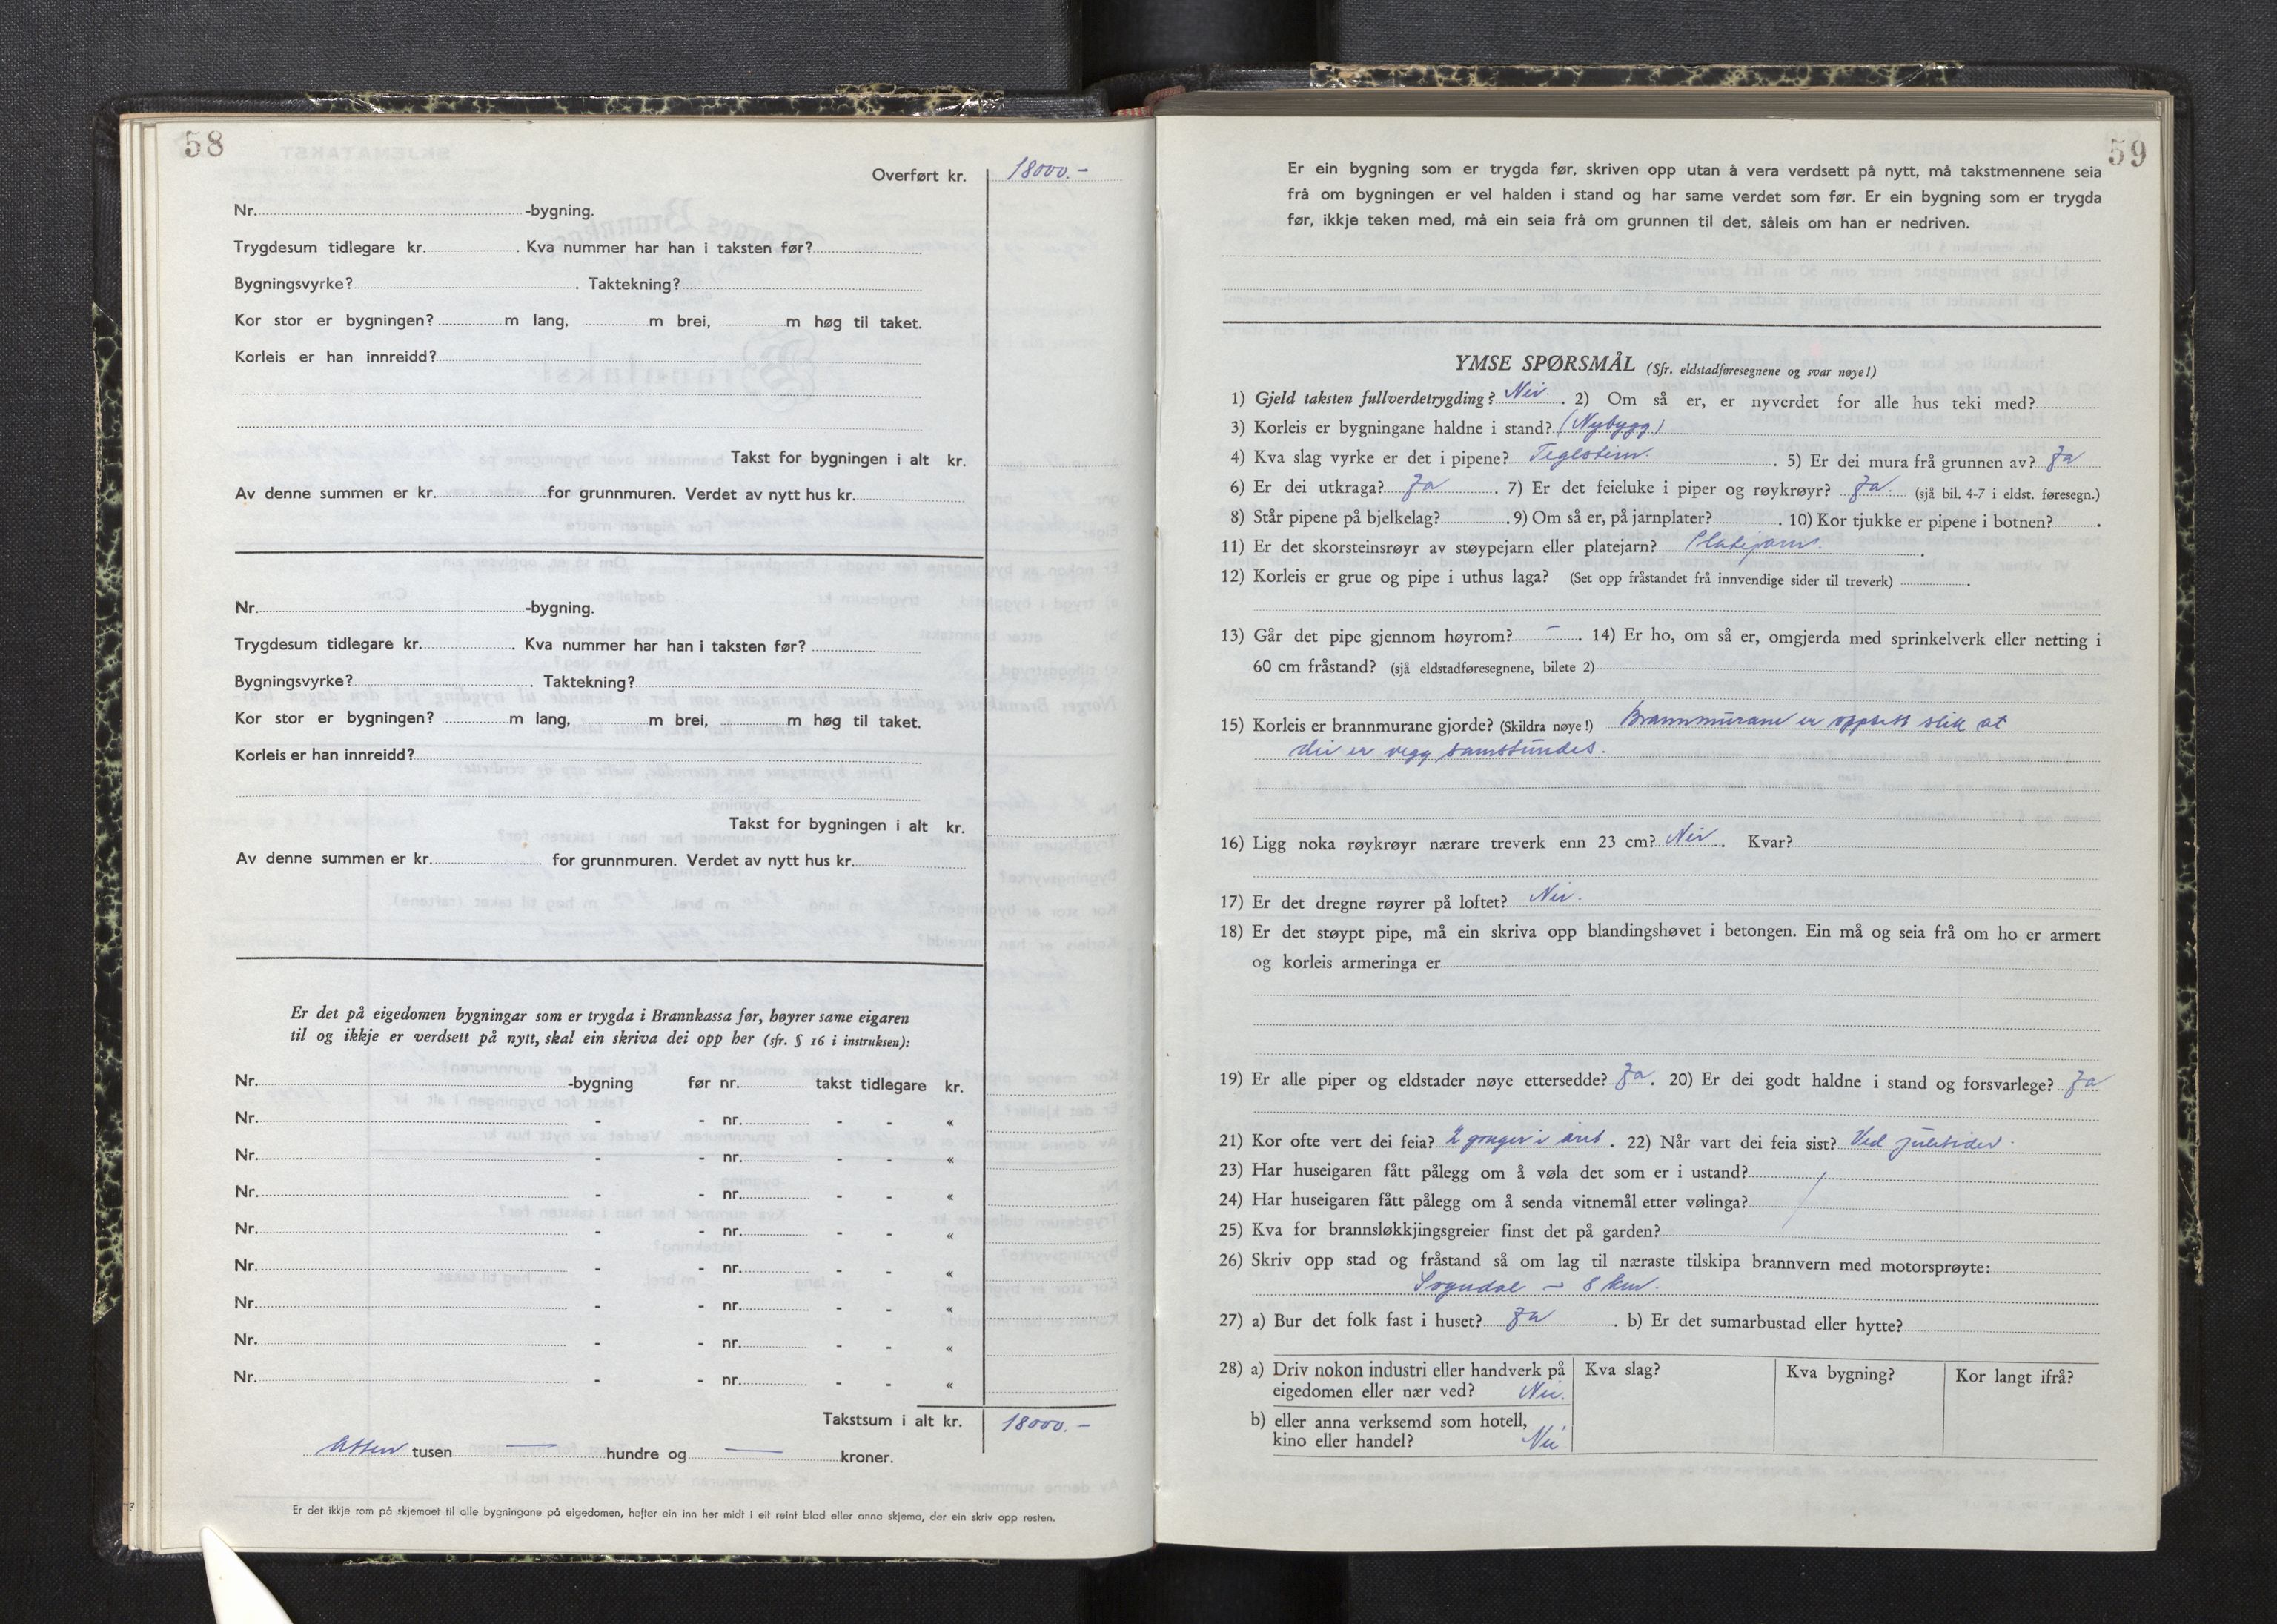 58
Overført kr. 18000.-
Nr. -bygning.
Trygdesum tidlegare kr. . Kva nummer har han i taksten før?
Bygningsvyrke? . Taktekning?
Kor stor er bygningen? m lang, m brei, m høg til taket.
Korleis er han innreidd?
Takst for bygningen i alt kr.
Av denne summen er kr. for grunnmuren. Verdet av nytt hus kr.
Nr. -bygning.
Trygdesum tidlegare kr. . Kva nummer har han i taksten før?
Bygningsvyrke? . Taktekning?
Kor stor er bygningen? m lang, m brei, m høg til taket.
Korleis er han innreidd?
Takst for bygningen i alt kr.
Av denne summen er kr. for grunnmuren. Verdet av nytt hus kr.
Er det på eigedomen bygningar som er trygda i Brannkassa før, høyrer same eigaren
til og ikkje er verdsett på nytt, skal ein skriva dei opp her (sfr. § 16 i instruksen):
Nr. -bygning før nr. takst tidlegare kr.
Nr. - - nr. - - «
Nr. - - nr. - - «
Nr. - - nr. - - «
Nr. - - nr. - - «
Nr. - - nr. - - «
Nr. - - nr. - - «
Nr. - - nr. - - «
Nr. - - nr. - - «
Takstsum i alt kr. 18000.-
Atten tusen — hundre og — kroner.
Er det ikkje rom på skjemaet til alle bygningane på eigedomen, hefter ein inn her midt i eit reint blad eller anna skjema, der ein skriv opp resten.
59
Er ein bygning som er trygda før, skriven opp utan å vera verdsett på nytt, må takstmennene seia
frå om bygningen er vel halden i stand og har same verdet som før. Er ein bygning som er trygda
før, ikkje teken med, må ein seia frå om grunnen til det, såleis om han er nedriven.
YMSE SPØRSMÅL (Sfr. eldstadføresegnene og svar nøye!)
1) Gjeld taksten fullverdetrygding? Nei. . 2) Om så er, er nyverdet for alle hus teki med?
3) Korleis er bygningane haldne i stand? (Nybygg)
4) Kva slag vyrke er det i pipene? Teglstein. . 5) Er dei mura frå grunnen av? Ja
6) Er dei utkraga? Ja . 7) Er det feieluke i piper og røykrøyr? Ja. (sjå bil. 4-7 i eldst. føresegn.)
8) Står pipene på bjelkelag? . 9) Om så er, på jarnplater? . 10) Kor tjukke er pipene i botnen? .
11) Er det skorsteinsrøyr av støypejarn eller platejarn? Platejarn. .
12) Korleis er grue og pipe i uthus laga? (Set opp fråstandet frå innvendige sider til treverk) .
13) Går det pipe gjennom høyrom? - . 14) Er ho, om så er, omgjerda med sprinkelverk eller netting i
60 cm fråstand? (sjå eldstadføresegnene, bilete 2)
15) Korleis er brannmurane gjorde? (Skildra nøye!) Brannmurane er oppsett slik at
dei er vegg samstundes.
16) Ligg noka røykrøyr nærare treverk enn 23 cm? Nei . Kvar?
17) Er det dregne røyrer på loftet? Nei.
18) Er det støypt pipe, må ein skriva opp blandingshøvet i betongen. Ein må og seia frå om ho er armert
og korleis armeringa er
19) Er alle piper og eldstader nøye ettersedde? Ja . 20) Er dei godt haldne i stand og forsvarlege? Ja
21) Kor ofte vert dei feia? 2 gonger i året . 22) Når vart dei feia sist? Ved juletider.
23) Har huseigaren fått pålegg om å vøla det som er i ustand?
24) Har huseigaren fått pålegg om å senda vitnemål etter vølinga?
25) Kva for brannsløkkjingsgreier finst det på garden?
26) Skriv opp stad og fråstand så om lag til næraste tilskipa brannvern med motorsprøyte:
Sogndal - 8 km.
27) a) Bur det folk fast i huset? Ja . b) Er det sumarbustad eller hytte?
28) a) Driv nokon industri eller handverk på Kva slag? Kva bygning? Kor langt ifrå?
eigedomen eller nær ved? Nei.
b) eller anna verksemd som hotell,
kino eller handel? Nei